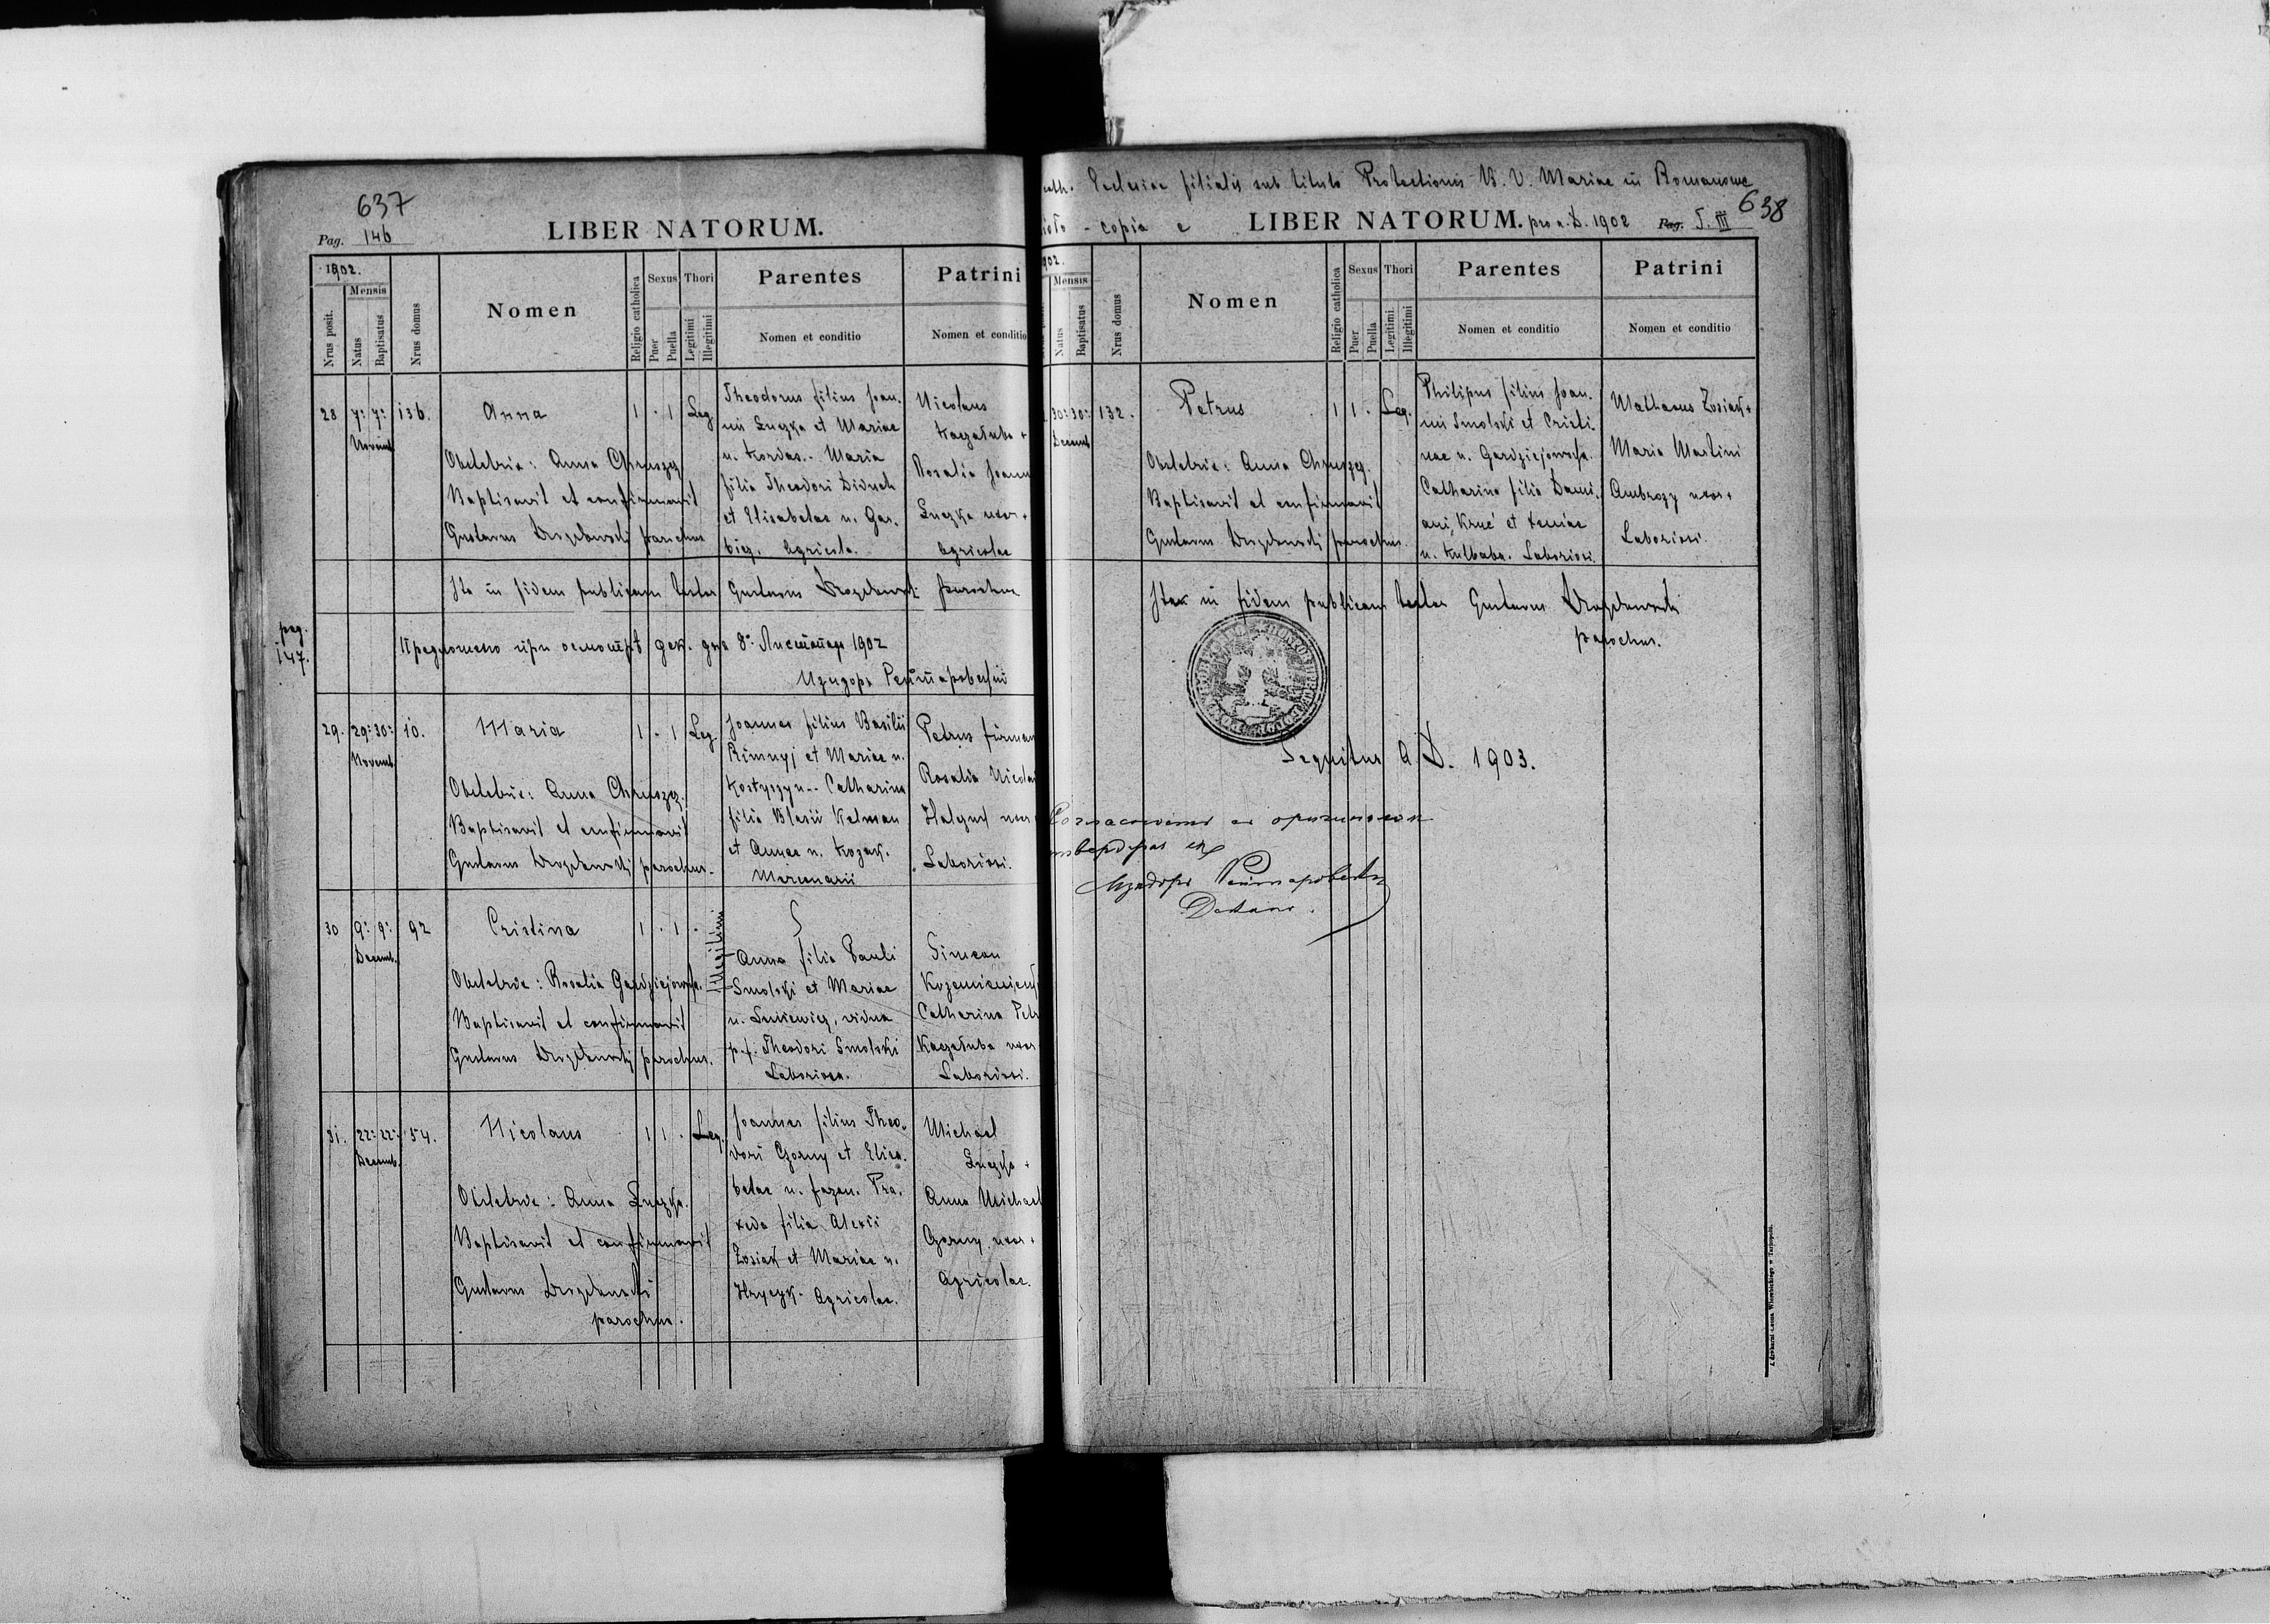 637
Pag. 146
LIBER NATORUM.
1902.
Nrus posit.
Mensis
Natus
Baptisatus
Nrus domus
Nomen
Religio catholica
Sexus
Puer
Puella
Thori
Legitimi
Illegitimi
Parentes
Nomen et conditio
Patrini
Nomen et conditio
28 7: 7: 136. Anna 1 . 1 Leg.
Novemb.
Obstetrix: Anna Chruszcz
Baptisavit et confirmavit
Gustavus Drozdowski parochus
Theodorus filius Joan-
nis Luczka et Mariae
n. Kordas.- Maria
filia Theodori Diduch
et Elisabetae n. Gar-
bicz. Agricola.
Nicolaus
Kaczałuba +
Rosalia Joann
Luczka uxor +
Agricolae
Ita in fidem publicam testor Gustavus Drozdowski parochus
pag.
147.
Предложено при осмотрѣ дек. дня 8: Листопада 1902
Изидоръ
29. 29: 30: 10. Maria 1 . 1 Leg.
Novemb
Obstetrix: Anna Chruszcz.
Baptisavit et confirmavit
Gustavus Drozdowski parochus.
Joannes filius Basilii
Rimnyj et Mariae n.
Kostyszyn.- Catharina
filia Blasii Kelman
et Annae n. Kozak.
Mercenarii
Petrus Furman
Rosalia Nicolai
uxor
Laboriosi.
30 9: 9: 92 Cristina 1 . 1 .
Decemb.
Illegitimi
Obstetrix: Rosalia Gardziejowska.
Baptisavit et confirmavit
Gustavus Drozdowski parochus.
Anna filia Pauli
Smolski et Mariae
n. Lukiewicz, vidua
p. f. Theodori Smolski
Laboriosa.
Simeon
Catharina Petr
Kaczałuba uxor
Laboriosi.
31. 22: 22: 54. Nicolaus 1 1 . Leg.
Decemb.
Obstetrix: Anna Luczka.
Baptisavit et confirmavit
Gustavus Drozdowski
parochus.
Joannes filius Theo-
dori Czorny et Elisa-
betae n. Pra-
xeda filia Alexii
Zosiak et Mariae n.
Hrycyk. Agricolae.
Michael
Luczka +
Anna Michael
Czorny uxor +
Agricolae.
cath. Ecclesiae filialis sub titulo Protectionis B. V. Mariae in Romanowe
638
copia e LIBER NATORUM. pro a. D. 1902 Pag. T. III
902.
Mensis
Natus
Baptisatus
Nrus domus
Nomen
Religio catholica
Sexus
Puer
Puella
Thori
Legitimi.
Illegitimi
Parentes
Nomen et conditio
Patrini
Nomen et conditio
30: 30: 132. Petrus 1 1 . Leg.
Decemb
Obstetrix: Anna Chruszcz.
Baptisavit et confirmavit
Gustavus Drozdowski parochus.
Philipus filius Joan-
nis Smolski et Cristi-
nae n. Gardziejowska.
Catharina filia Dami-
ani Kruć et Xeniae
n. Kulbaba. Laboriosi.
Mathaeus Zosiak +
Maria Martini
Ambrozy uxor +
Laboriosi.
Itak in fidem publicam testor Gustavus Drozdowski
parochus.
Sequitur A. D. 1903.
Изидоръ
Z drukarni Leona Wierzbickiego w Tarnopolu.